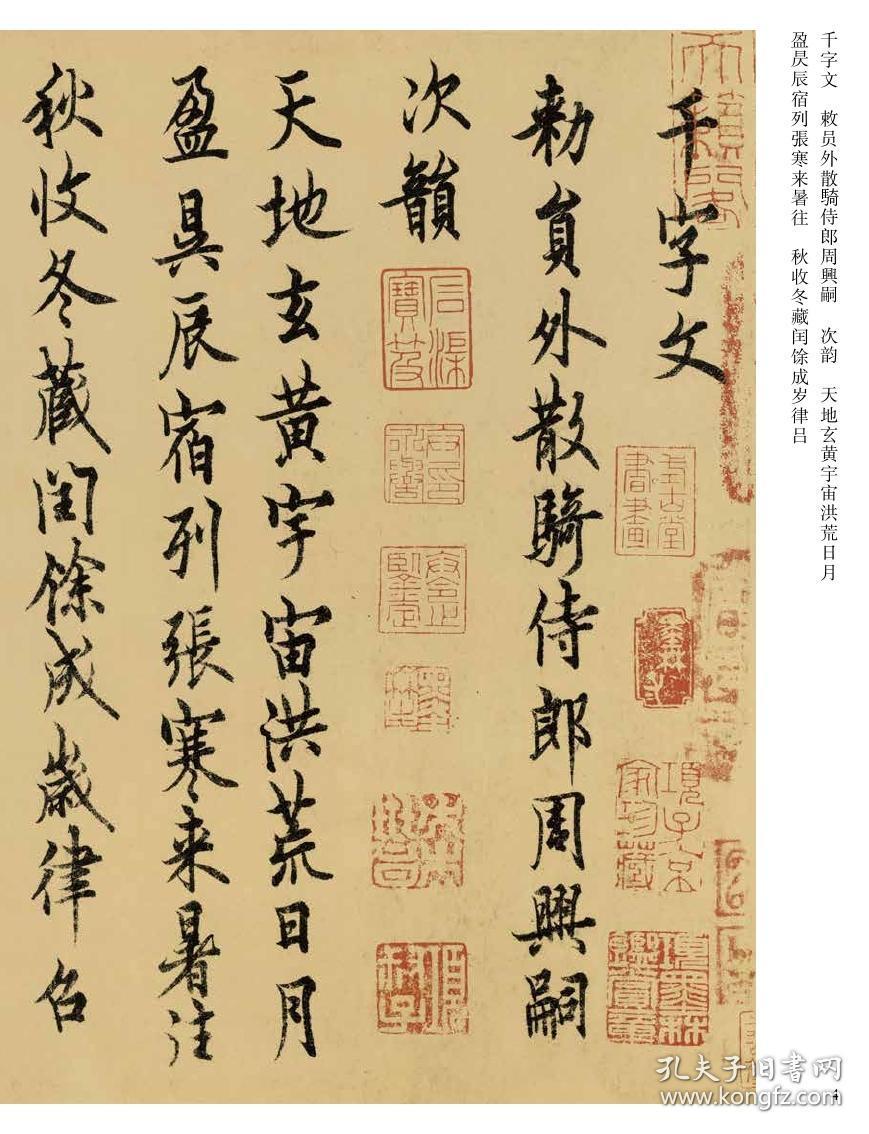 千字文 敕员外散騎侍郎周興嗣 次韵 天地玄黄宇宙洪荒日月
盈昃辰宿列張寒来暑往 秋收冬藏闰馀成岁律吕
千字文
勑員外散騎侍郎周興嗣
次韻
天地玄黄宇宙洪荒日月
盈昃辰宿列張寒来暑往
秋收冬藏閏餘成歲律召
天籟閣
項子京家珍藏
項墨林鑑賞章
石渠寶笈
孔夫子旧书网
www.kongfz.com
4